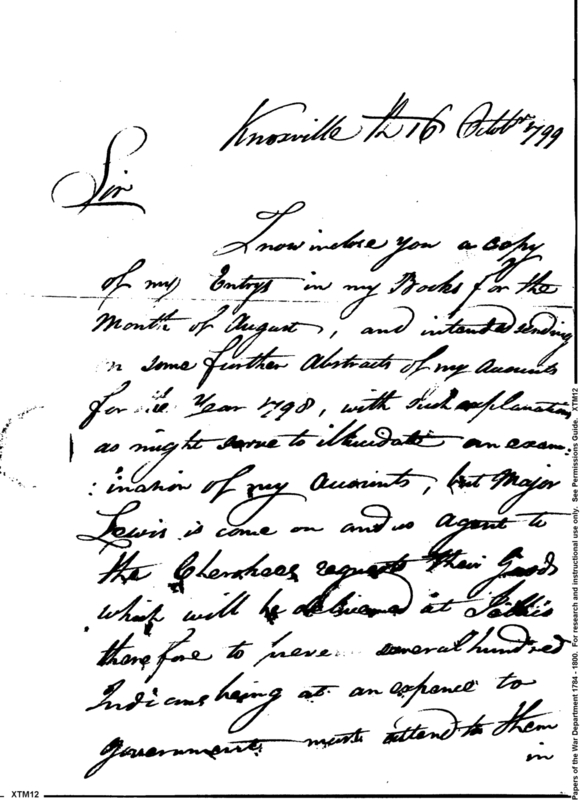 Knoxville th 16 Octobr 1799
Sir
I now inclose you a copy
of my Entrys in my Books for the
Month of August, and intended sending
on some further Abstracts of my Accounts
for the Year 1798, with such explanation
as might serve to illucidate an exam:
:ination of my Accounts, but Major
Lewis is come on and as agent to
the Cherokees requests their Goods
which will be delivered at
therefore to several hundred
Indians being at an expence to
government must attend to them
in
XTM12
Papers of the War Department 1784 - 1800. For research and instructional use only. See Permissions Guide. XTM12